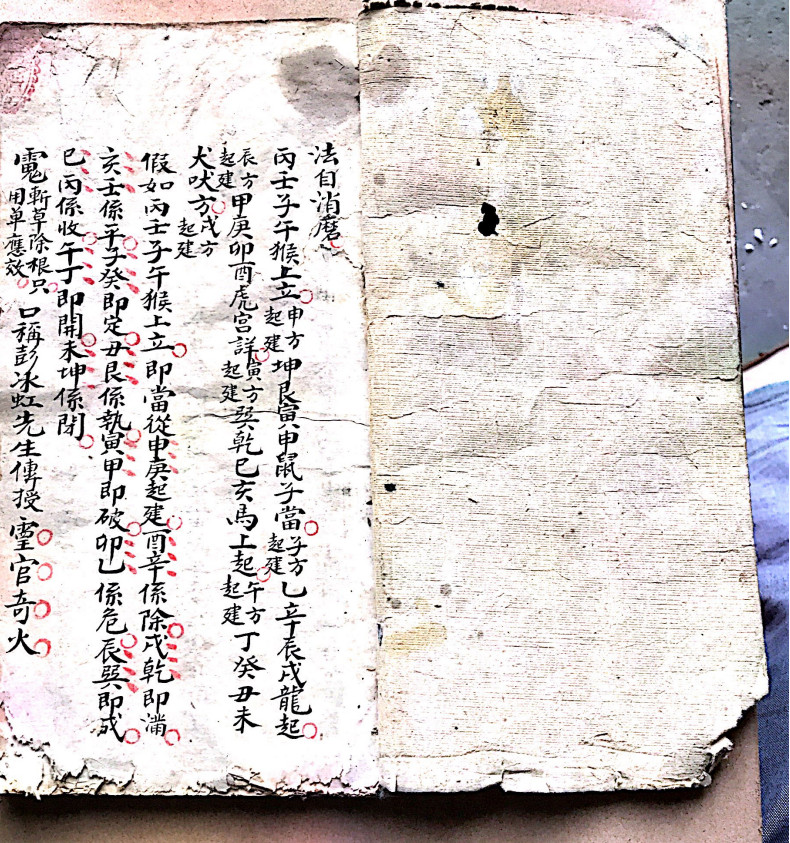 法自消磨
丙壬子午猴上立申方起建坤艮寅申鼠子當子方起建乙辛辰戌龍起
辰方起建甲庚卯酉虎宫詳寅方起建巽乾巳亥馬上起午方起建丁癸丑未
犬吠方戌方起建
假如丙壬子午猴上立即當從申庚起建酉辛係除戌乾即滿
亥壬係平子癸即定丑艮係執寅甲即破卯乙係危辰巽即成
巳丙係收午丁即開未坤係閉
斬草除根只用单應效口稱彭冰虹先生傳授䨩官奇火